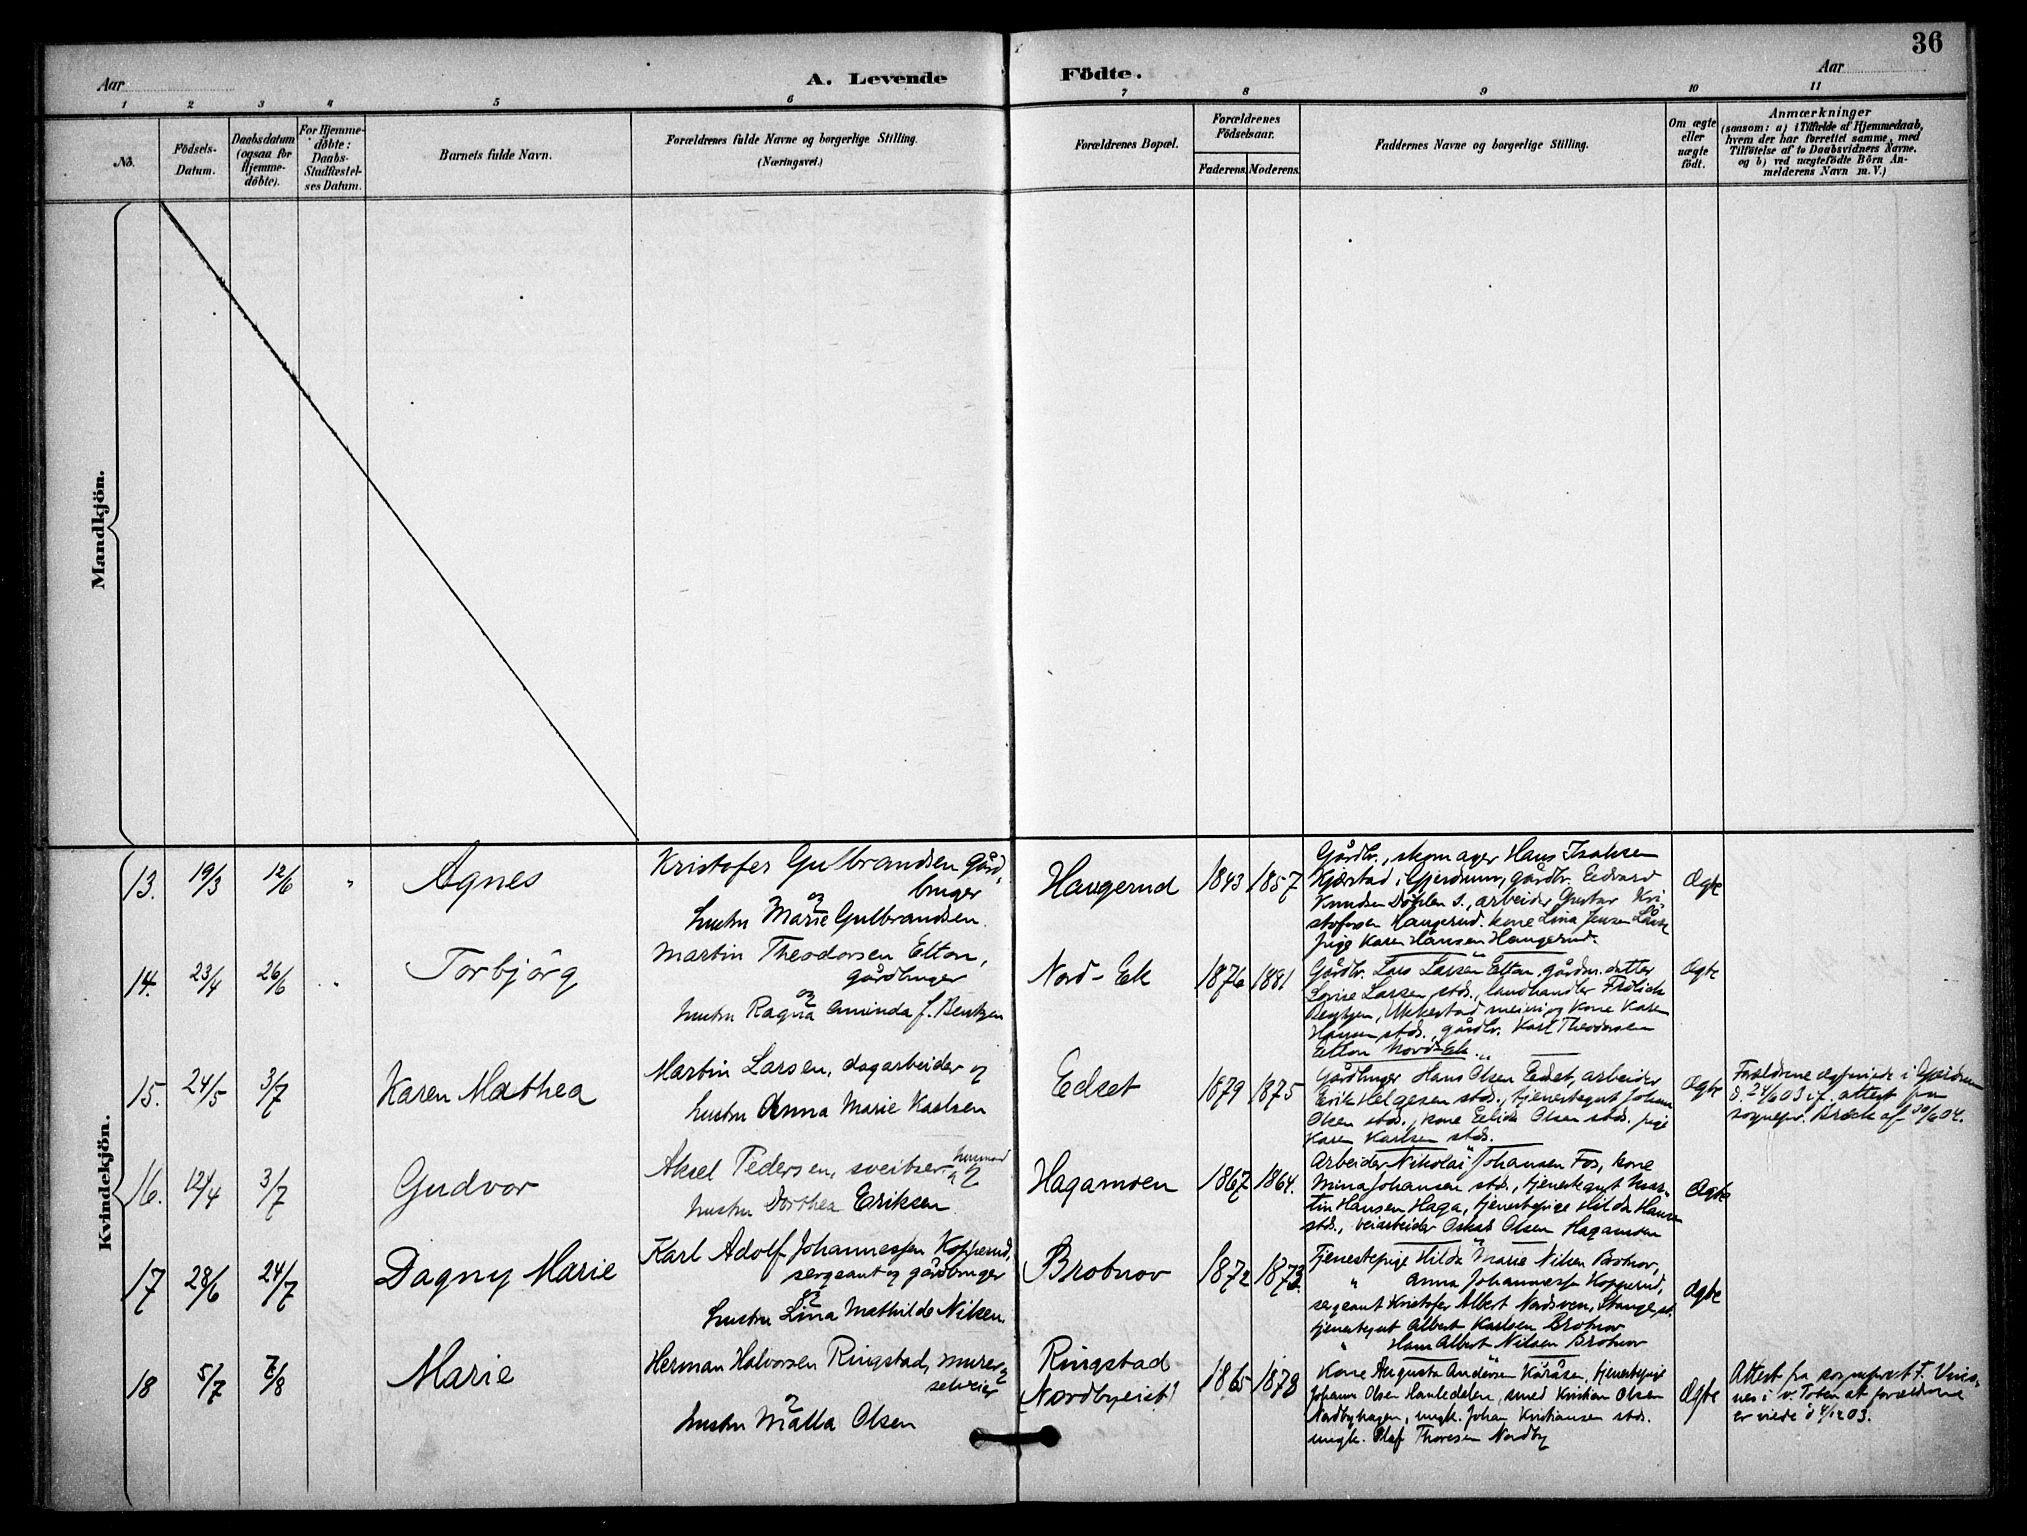 36
Aar
A. Levende
Födte.
Aar
1 2 3 4 5 6 7 8 9 10 11
No.
Födsels-
Datum.
Daabsdatum
(ogsaa for
Hjemme-
döbte).
For Hjemme-
döbte:
Daabs-
Stadfæstel-
ses Datum.
Barnets fulde Navn.
Forældrenes fulde Navne og borgerlige Stilling.
(Næringsvei.)
Forældrenes Bopæl.
Forældrenes
Födselsaar.
Faderens.
Moderens.
Faddernes Navne og borgerlige Stilling.
Om ægte
eller
uægte
födt.
Anmærkninger
(saasom: a) i Tilfælde af Hjemmedaab,
hvem der har forrettet samme, med
Tilföielse af to Daabsvidners Navne.
og b) ved uægtefödte Börn An-
melderens Navn m. V.)
Mandkjön.
Kvindekjön.
13. 19/3 12/6 " Agnes
Kristofer Gulbrandsen Gård-
bruger
og
hustru Marie Gulbrandsen.
Haugerud 1843 1857
Gårdbr., skomager Hans Isaksen
Kjærstad i Gjerdrum, gårdbr. Edvard
Knudsen Döhlen s., arbeider Gustav Kri-
stofersen Haugerud. kone Lina Jensen
pige Karen Hansen Haugerud.
Ægte
14. 23/4 26/6 " Torbjörg
Martin Theodorsen Elton,
gårdbruger
og
hustru Ragna Aminda f. Bentzen
Nord-Ek 1876 1881
Gårdbr. Lars Larsen Elton, gårdm. datter
Lovise Larsen stds., landhandler Frölich
Bentzen, Ukkestad meieri og kone Karen
Hansen stds., gårdbr. Karl Theodorsen
Elton Nord-Ek.
Ægte
15. 24/5 3/7 Karen Mathea
Martin Larsen, dagarbeider og
hustru Anna Marie Karlsen
Edset 1879 1875
Gårdbruger Hans Olsen Edset, arbeider
Erik Helgesen stds., tjenestegut Johan
Olsen stds., kone Elida Olsen stds. pige
Karen Karlsen stds.
Ægte
Forældrene ægteviede i Gjerdrum
d. 24/6 03 if. attest fra
sognepr. Bræck af 30/6 04.
16. 12/4 3/7 Gudvor
Aksel Pedersen, sveitser
og
hustru Dorthea Eriksen
Hagamoen 1867 1864.
Arbeider Nikolai Johansen Fos, kone
Mina Johansen stds., tjenestegut Mar-
tin Hansen Haga, tjenestepige Hilda Hansen
stds., veiarbeider Oskar Olsen Hagamoen
Ægte
17 28/6 24/7 Dagny Marie
Karl Adolf Johannessen Kopperud,
sergeant og gårdbruger
og
hustru Lina Mathilde Nilsen.
Brotnov 1872 1873
Tjenestepige Hilda Marie Nilsen Brotnov,
" Anna Johannessen Kopperud,
sergeant Kristofer Albert Nordsven, Stange st.
tjenestegut Albert Karlsen Brotnov
" Hans Albert Nilsen Brotnov
Ægte
18 5/7 7/8 Marie
Herman Halvorsen Ringstad, murer og
selveier
og
hustru Malla Olsen
Ringstad
(Nordbyeiet) 1865 1878
Kone Augusta Andersen Kåråsen, tjenestepige
Johanne Olsen Hauledalen, smed Kristian Olsen
Nordbyhagen, ungk. Johan Kristiansen stds.
ungk. Olaf Thoresen Nordby
Ægte
Attest fra sogneprest F.
nes i v. Toten at forældrene
er viede d 4/12 03.